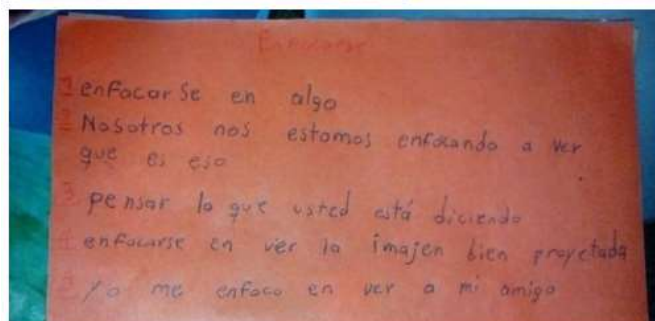 Enfocarse
1 enfocarse en algo
2 Nosotros nos estamos enfocando a ver
que es eso
3 pensar lo que usted está diciendo
4 enfocarse en ver la imajen bien proyectada
5 Yo me enfoco en ver a mi amigo